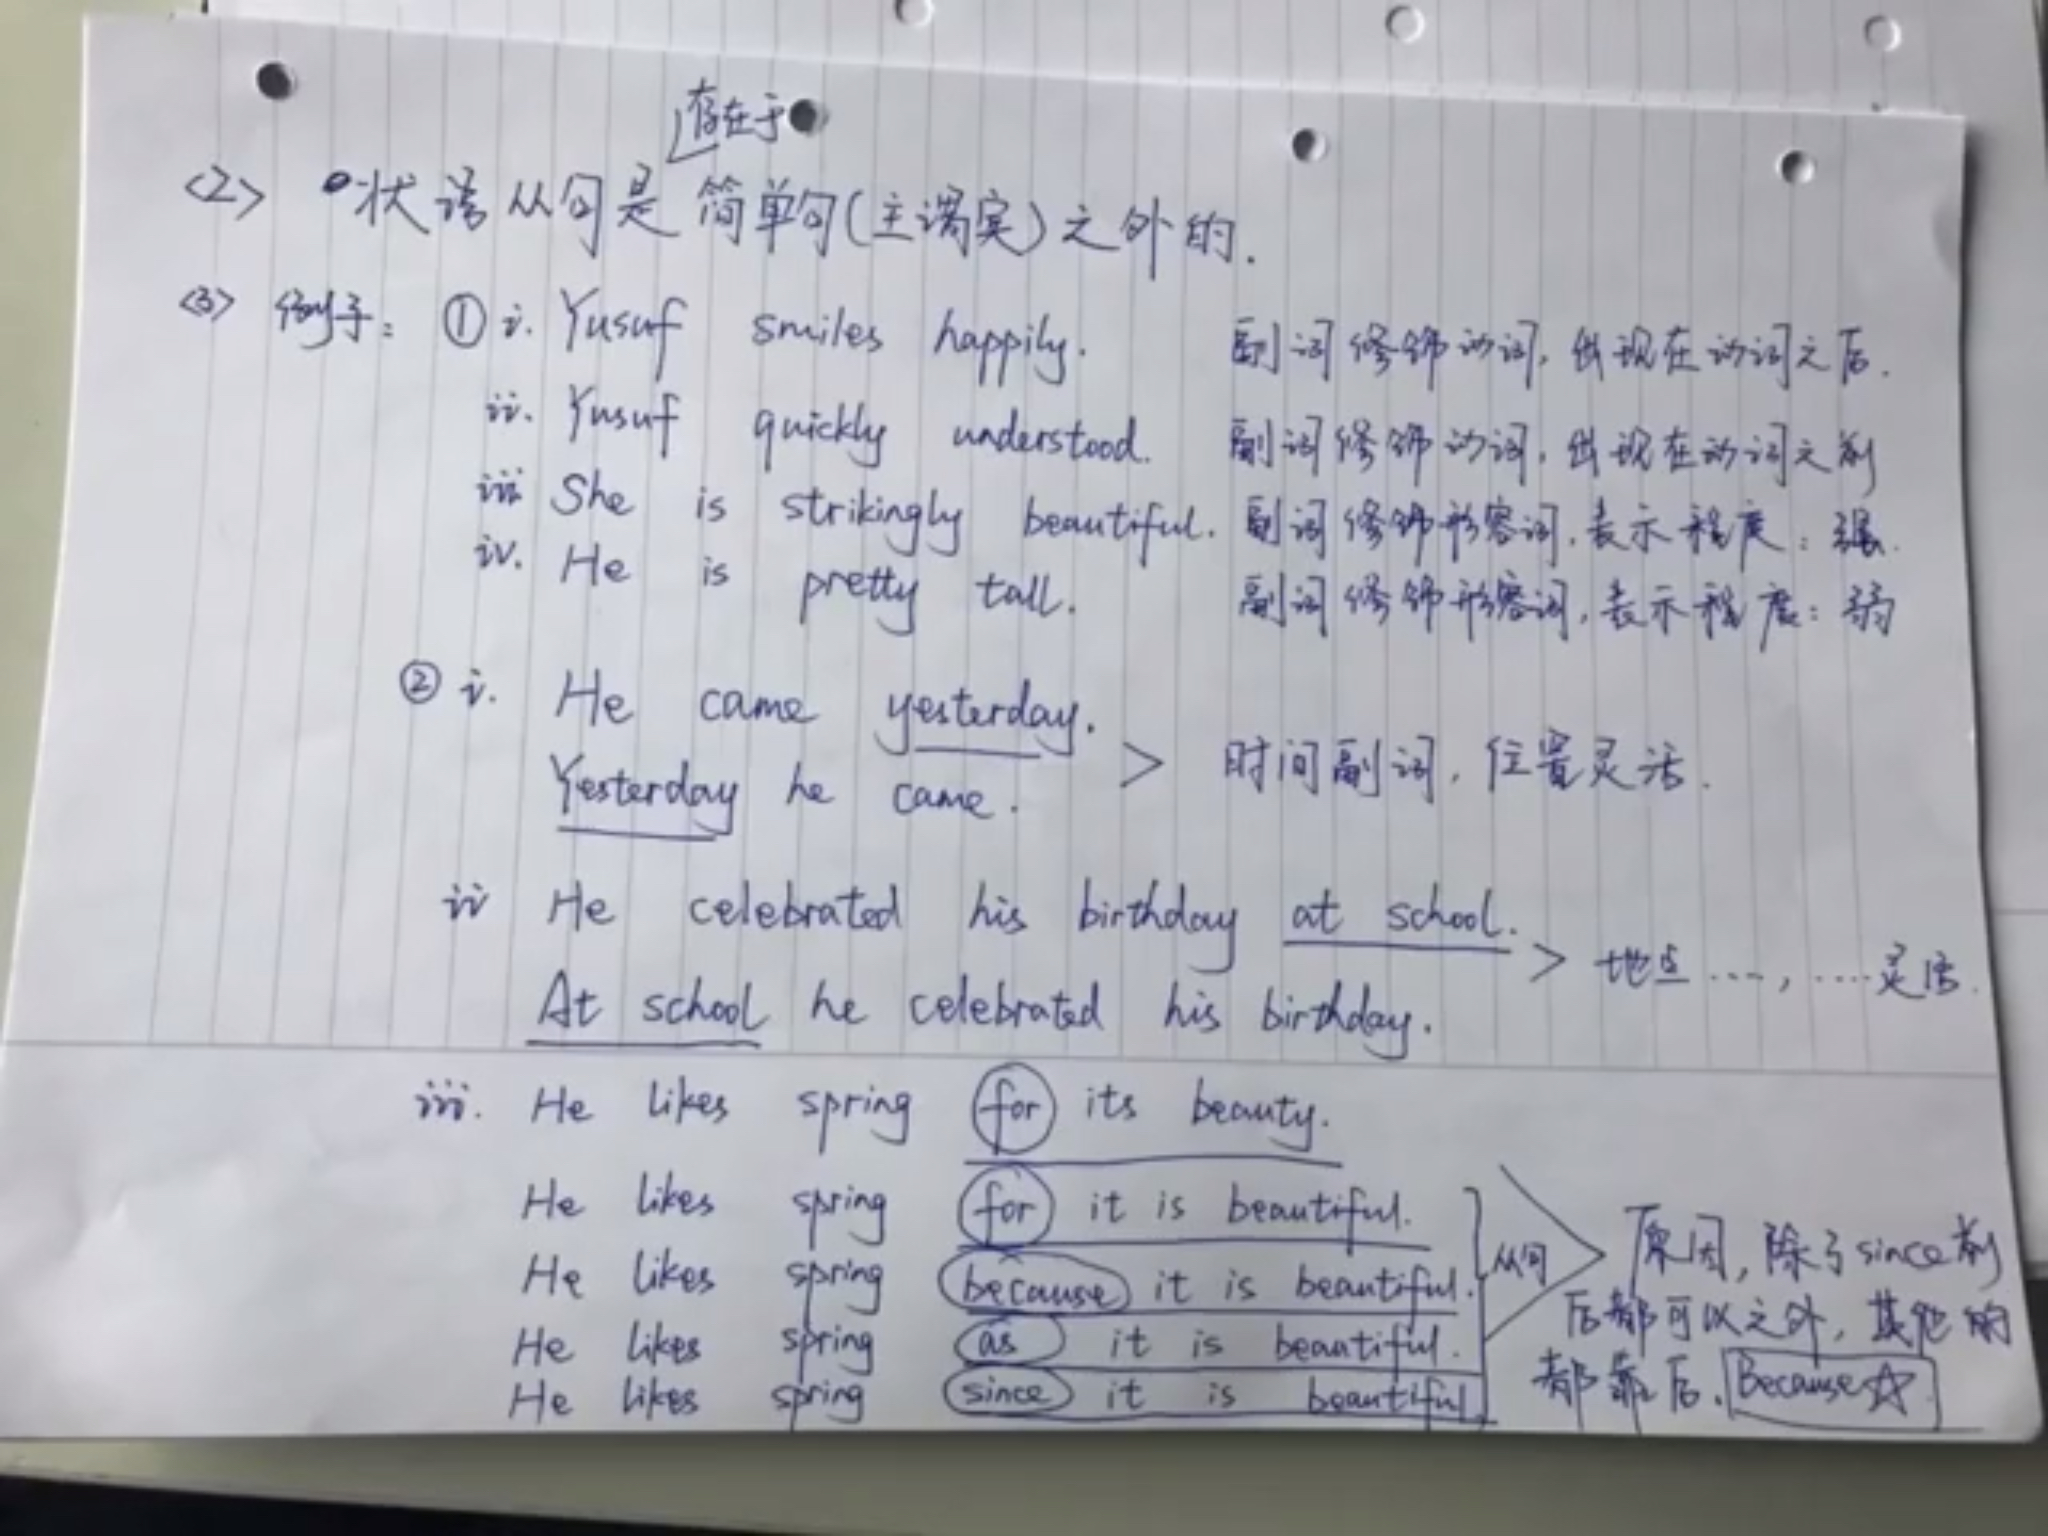 存在于
<2> 状语从句是 简单句(主谓宾)之外的.
<3> 例子: ① i. Yusuf smiles happily. 副词修饰动词, 出现在动词之后.
ii. Yusuf quickly understood. 副词修饰动词, 出现在动词之前
iii She is strikingly beautiful. 副词修饰形容词, 表示程度: 强.
iv. He is pretty tall. 副词修饰形容词, 表示程度: 弱
② i. He came yesterday.
Yesterday he came. > 时间副词, 位置灵活.
ii He celebrated his birthday at school.
> 地点 ..., .... 灵活.
At school he celebrated his birthday.
iii. He likes spring for its beauty.
He likes spring for it is beautiful.
He likes spring because it is beautiful.
He likes spring as it is beautiful.
He likes spring since it is beautiful
从句
原因, 除了since前
后都可以之外, 其他的
都靠后. Because☆